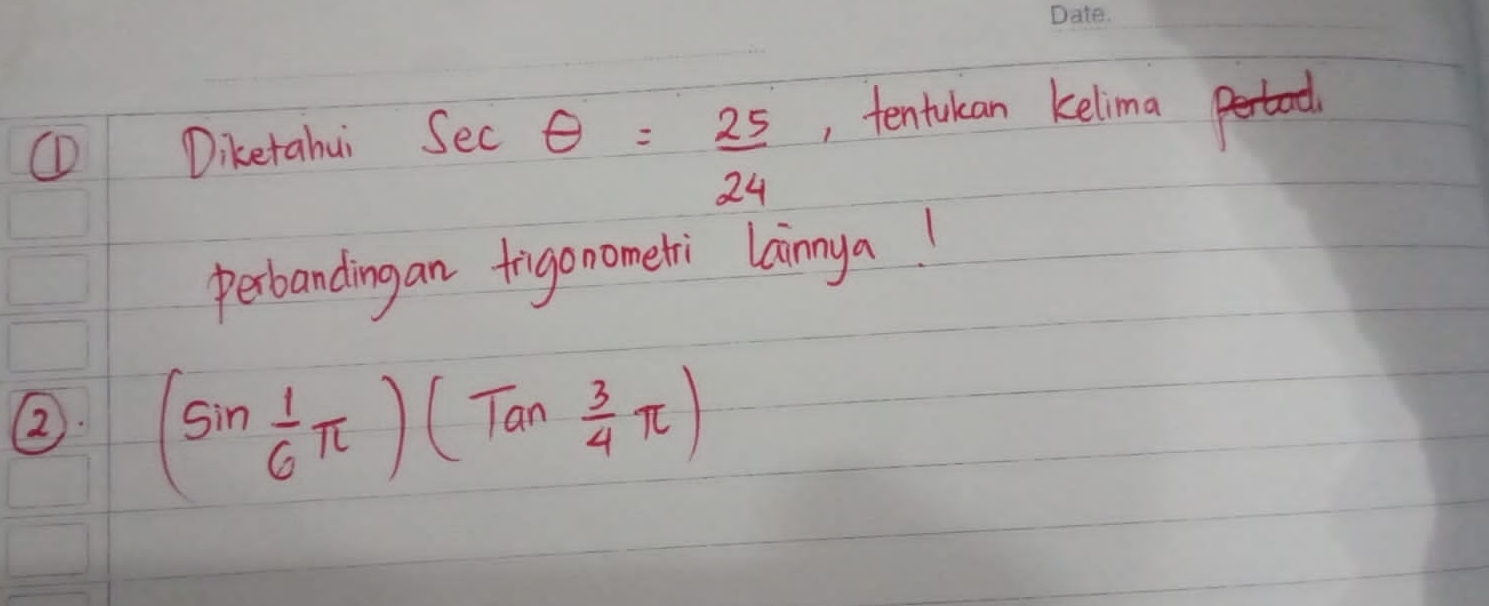 Date.
① Diketahui Sec θ = 25/24, tentukan kelima
perbandingan trigonometri lainnya !
②. (Sin 1/6 π) (Tan 3/4 π)